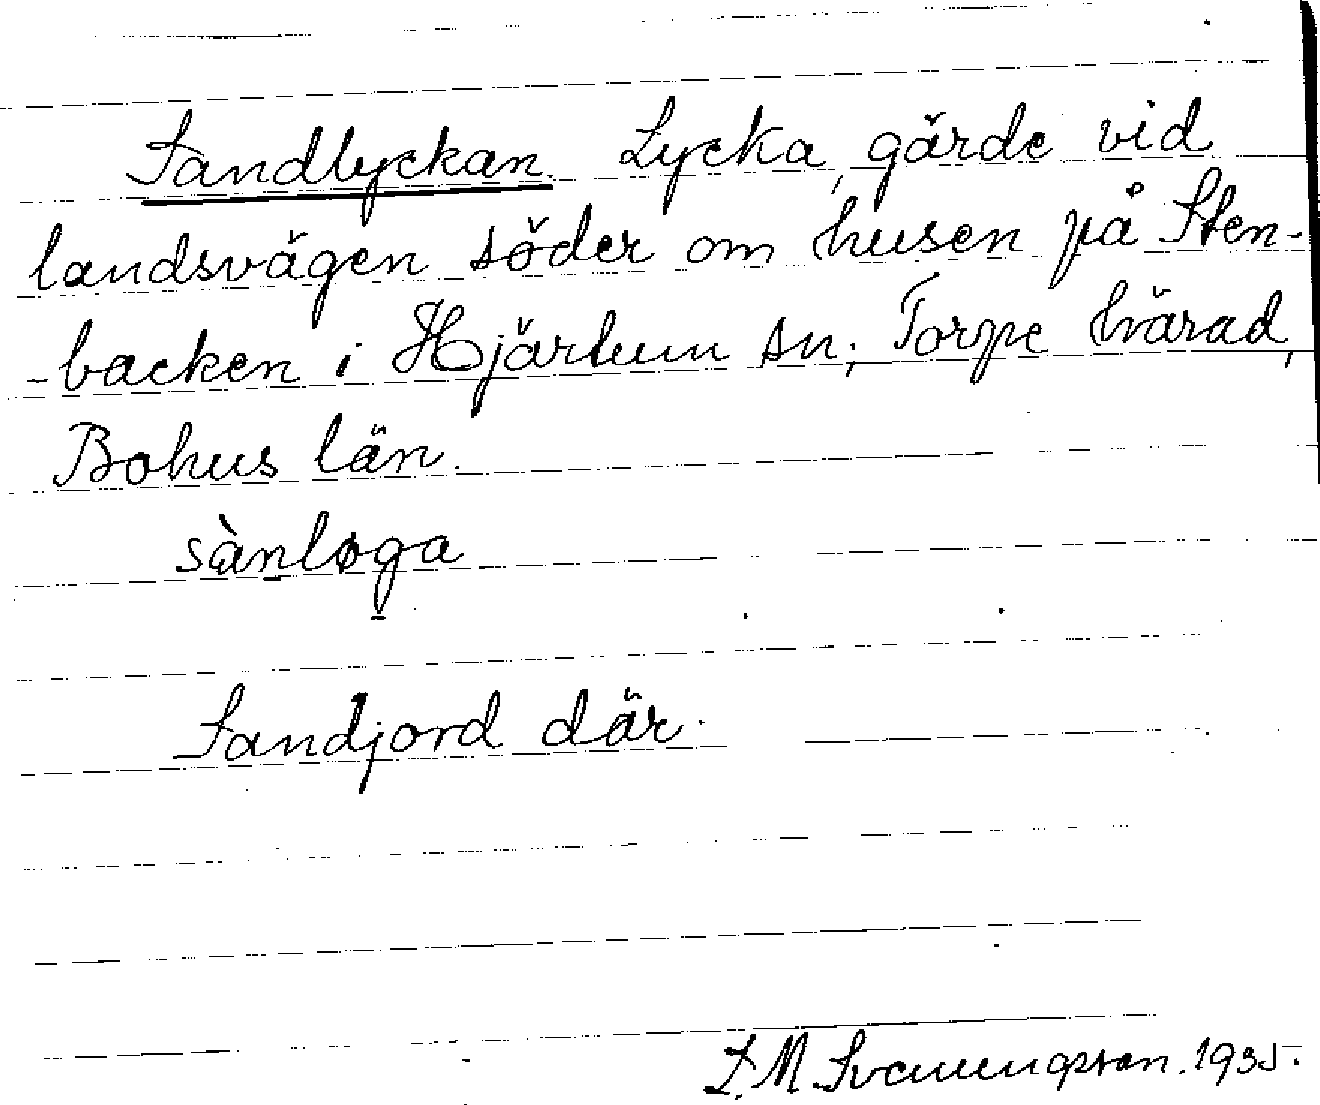 Sandlyckan. Lycka, gärde vid
landsvägen söder om husen på Sten-
-backen i Hjärtum sn; Torpe härad,
Bohus län.
sànloga
Sandjord där.
S. M. Svenungsson. 1935.